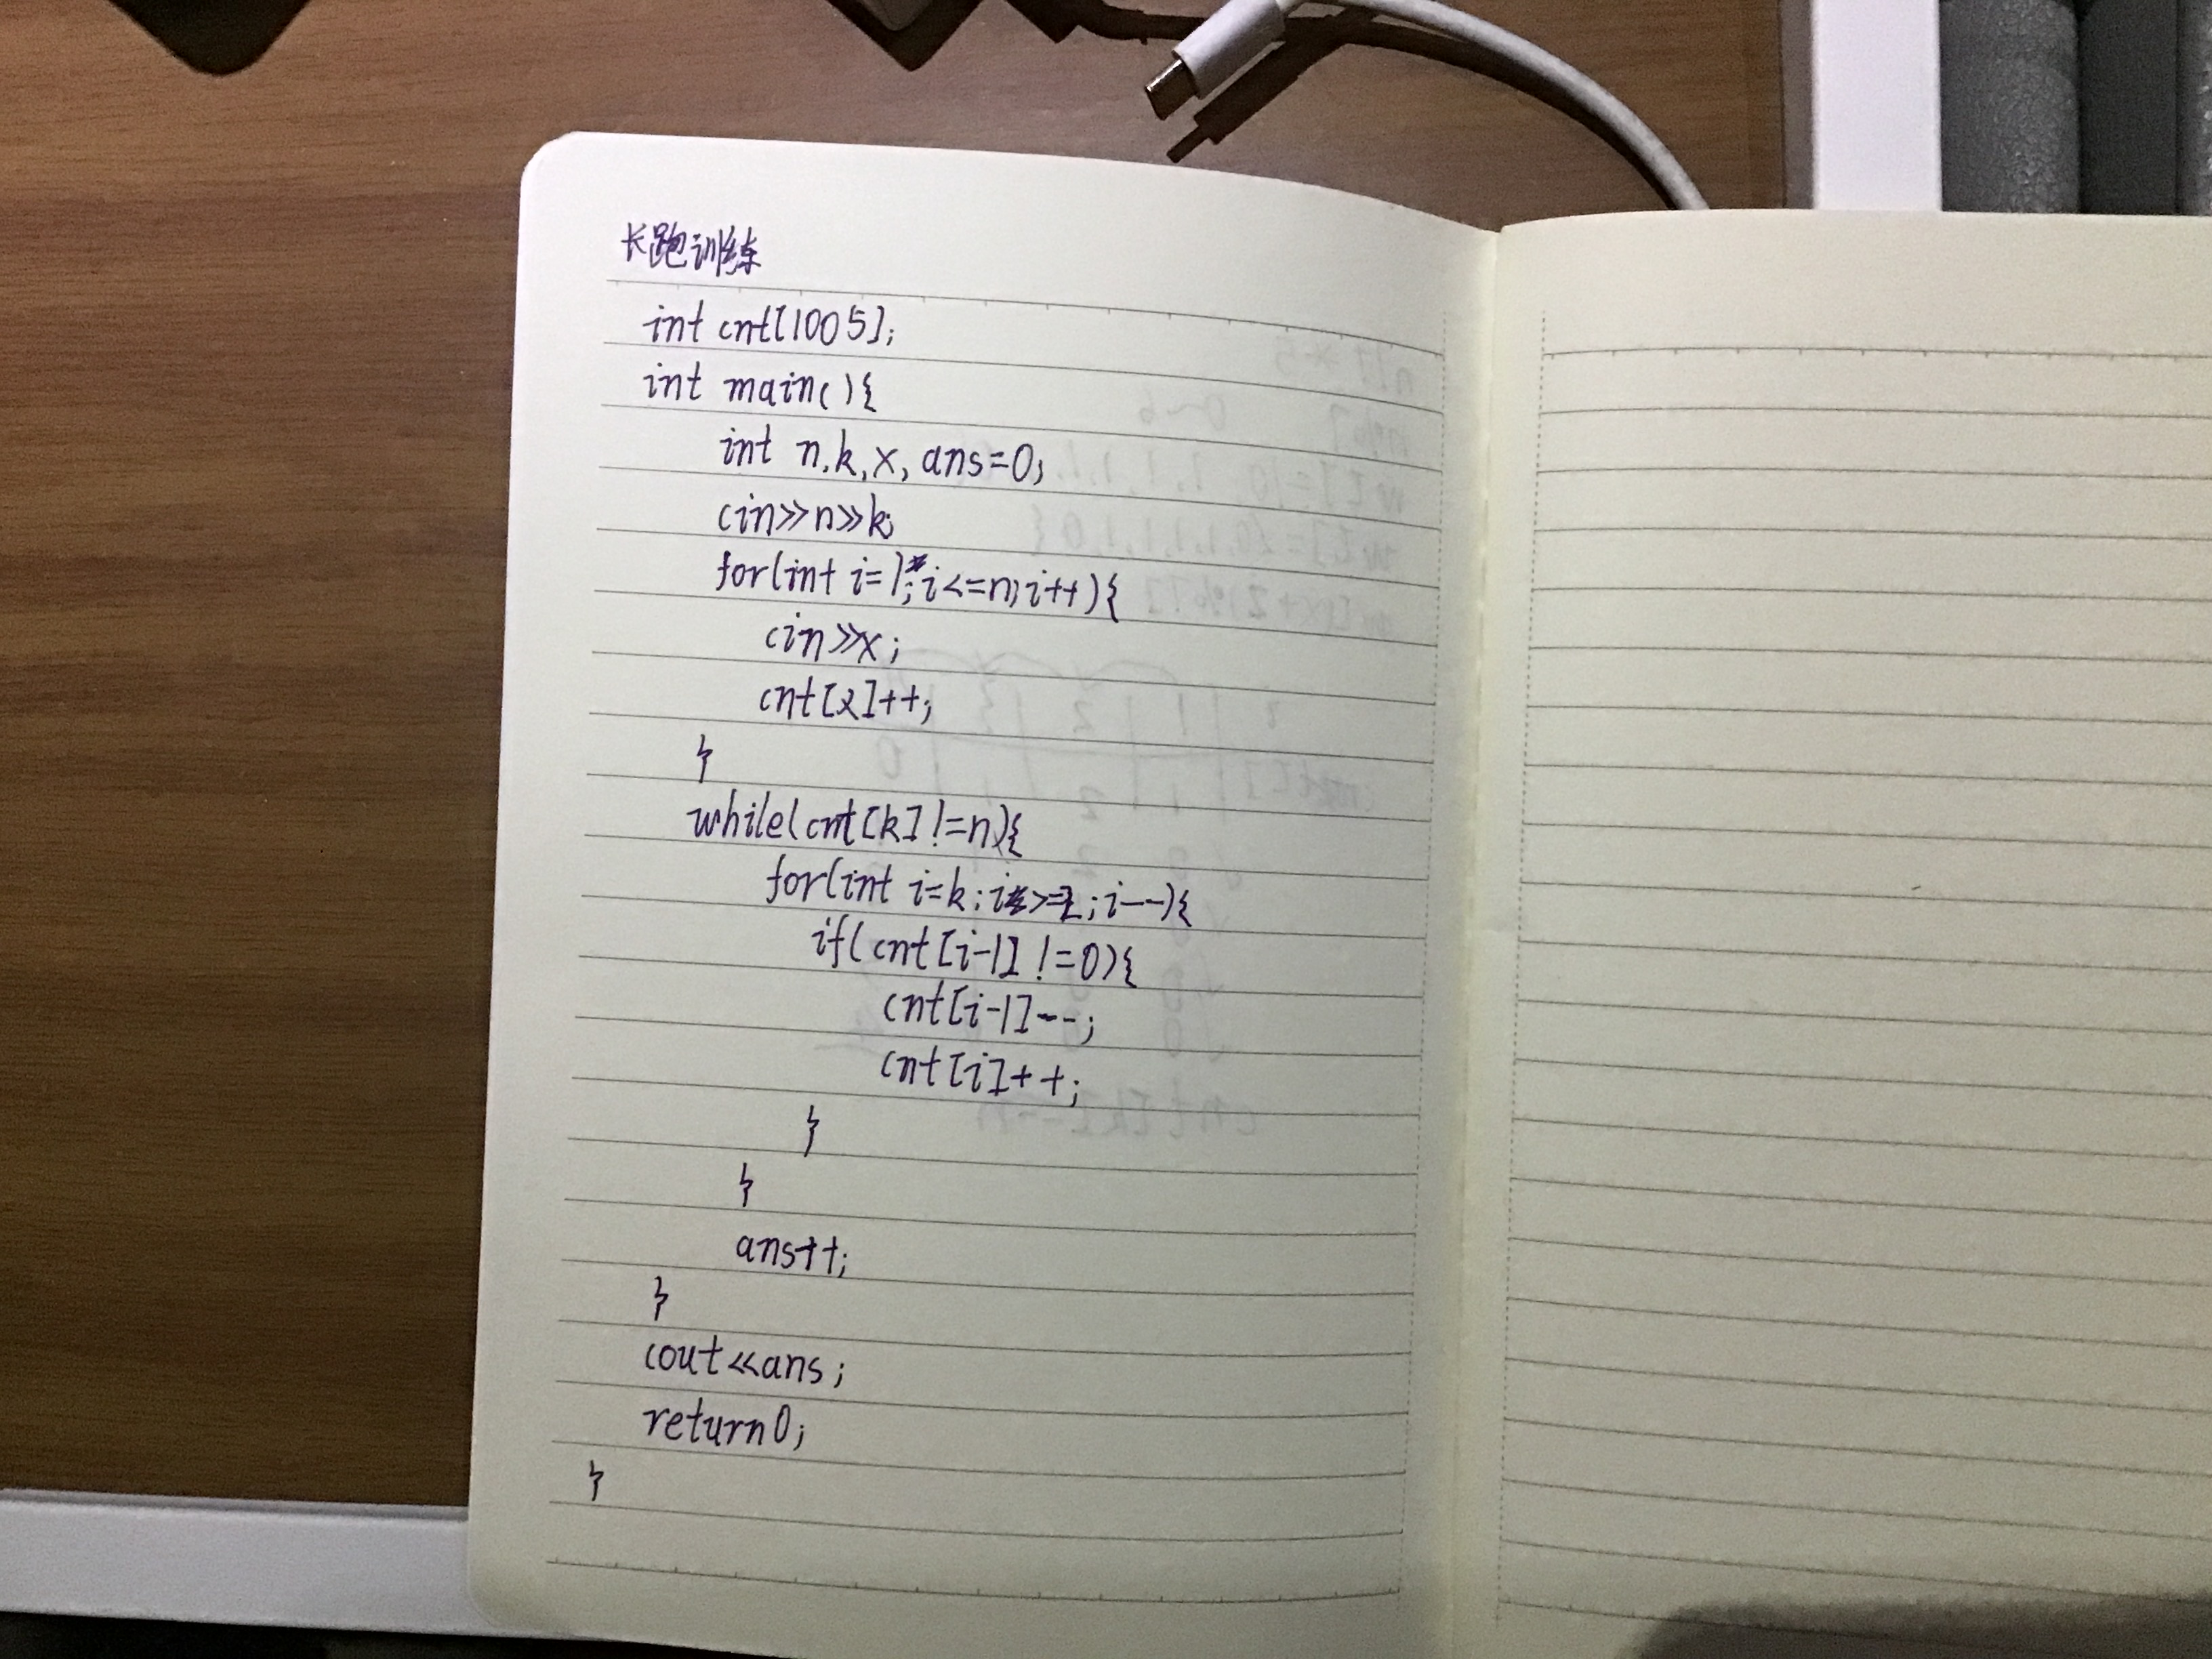 长跑训练
int cnt[1005];
int main(){
int n,k,x,ans=0;
cin>>n>>k;
for(int i=1;i<=n;i++){
cin>>x;
cnt[x]++;
}
while(cnt[k]!=n){
for(int i=k;i>=2;i--){
if(cnt[i-1]!=0){
cnt[i-1]--;
cnt[i]++;
}
}
ans++;
}
cout<<ans;
return 0;
}